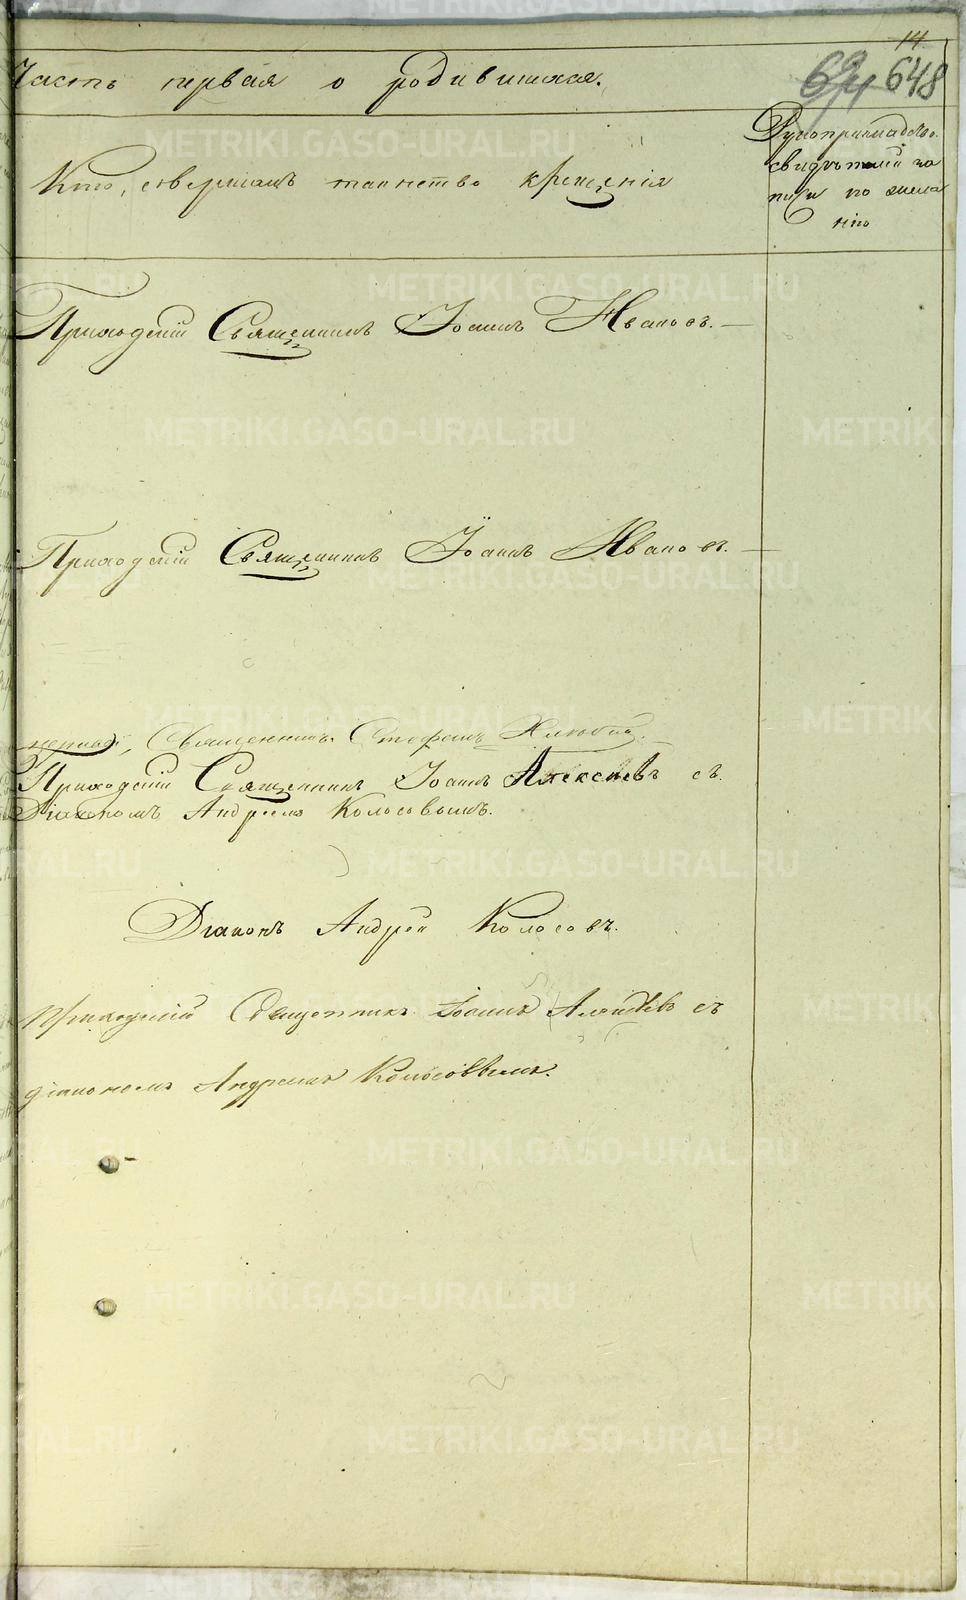 14
694 648
Часть первая о родившихся.
Кто, совершалъ таинство крещенія
Рукоприкладство
свидѣтелей за
писи по жела
нію
Приходскій Священникъ Іоаннъ Ивановъ.
Приходскій Священникъ Іоаннъ Ивановъ.
Священникъ Стефанъ
Приходскій Священникъ Іоаннъ Алексѣевъ съ
Діакономъ Андреемъ Колосовымъ.
Діаконъ Андрей Колосовъ.
Приходскій Священникъ Іоаннъ Алексѣевъ съ
діакономъ Андреемъ Колосовымъ.
METRIKI.GASO-URAL.RU